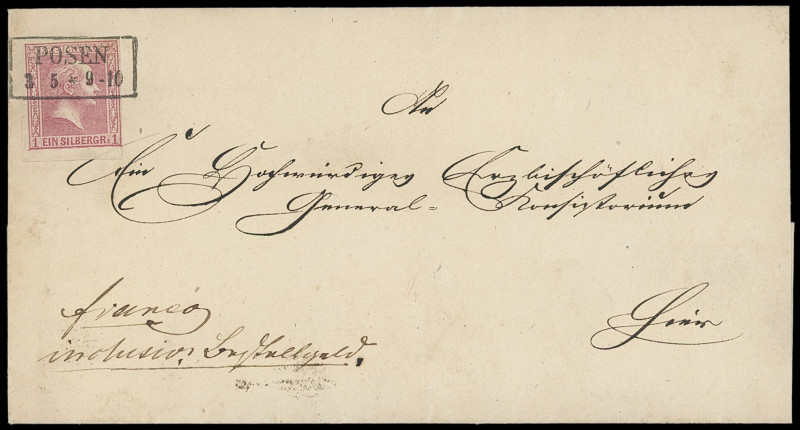 POSEN
3 5 * 9-10
1 EIN SILBERGR. 1
An
Ein Hochwürdiges Erzbischöfliches
General-Konsistorium
Hier
franco
inclusiv. Bestellgeld,